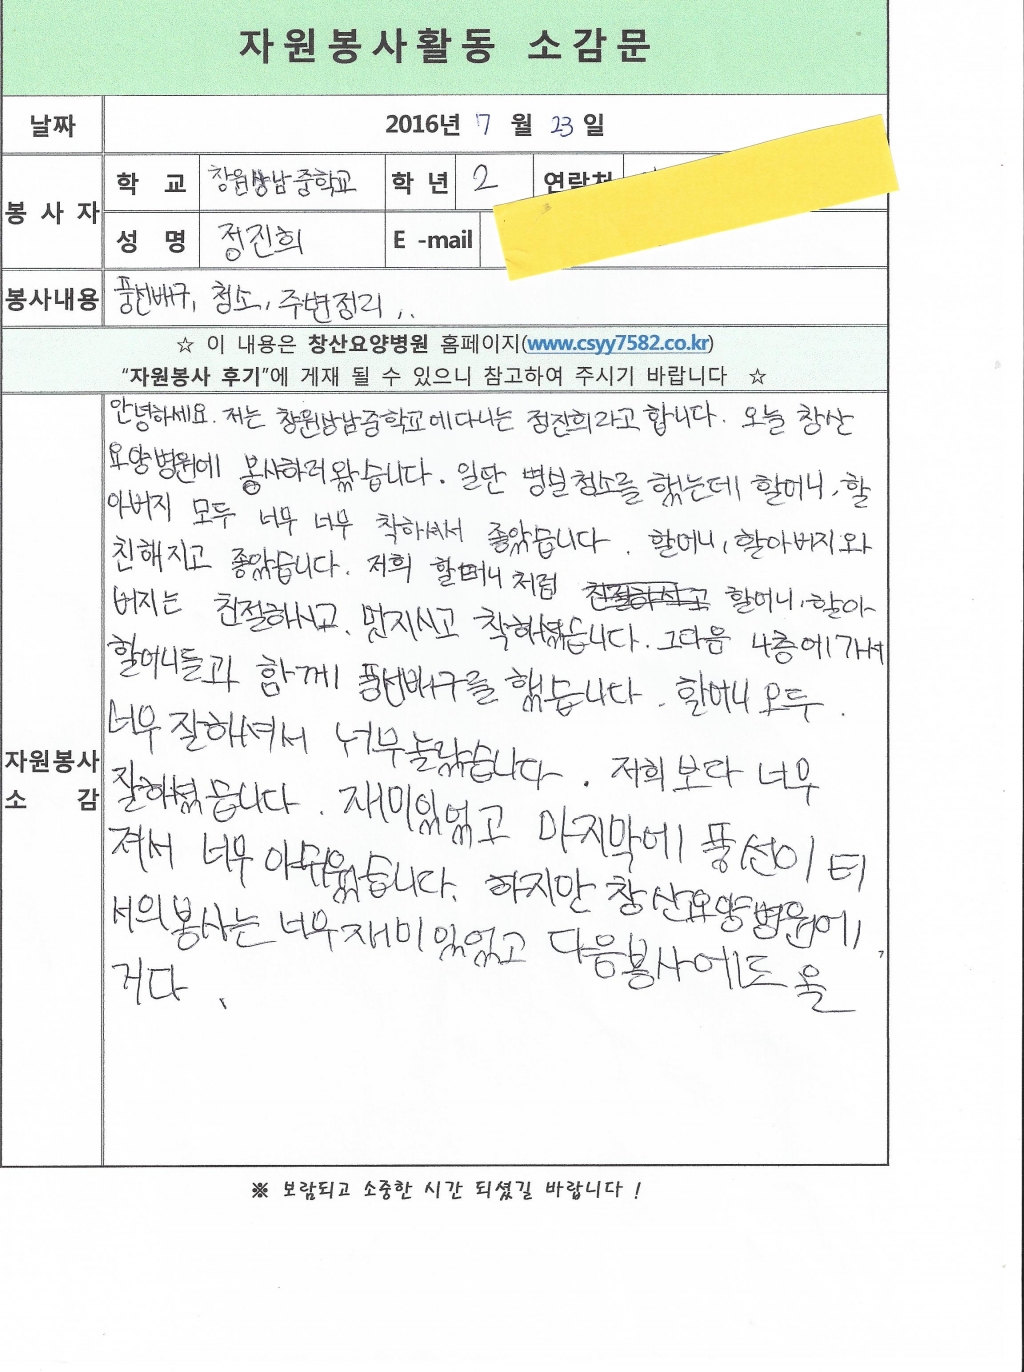 자원봉사활동 소감문
날짜 2016년 7 월 23 일
봉사자 학 교 창원상남중학교 학 년 2 연락처
성 명 정진희 E -mail
봉사내용 풍선배구, 청소, 주변정리..
☆ 이 내용은 창산요양병원 홈페이지(www.csyy7582.co.kr)
“자원봉사 후기”에 게재 될 수 있으니 참고하여 주시기 바랍니다 ☆
자원봉사
소 감
안녕하세요. 저는 창원상남중학교에다니는 정진희라고 합니다. 오늘 창산
요양병원에 봉사하러왔습니다. 일단 병실청소를 했는데 할머니, 할
아버지 모두 너무 너무 착하셔서 좋았습니다. 할머니, 할아버지와
친해지고 좋았습니다. 저희 할머니처럼 친절하시고 할머니, 할아
버지는 친절하시고, 멋지시고 착하셨습니다. 그다음 4층에가서
할머니들과 함께 풍선배구를 했습니다. 할머니 모두.
너무 잘하셔서 너무놀랐습니다. 저희보다 너무
잘하셨습니다. 재미있었고 마지막에 풍선이 터
져서 너무 아쉬웠습니다. 하지만 창산요양병원에
서의봉사는 너무재미있었고 다음봉사에도 올
거다.
※ 보람되고 소중한 시간 되셨길 바랍니다 !